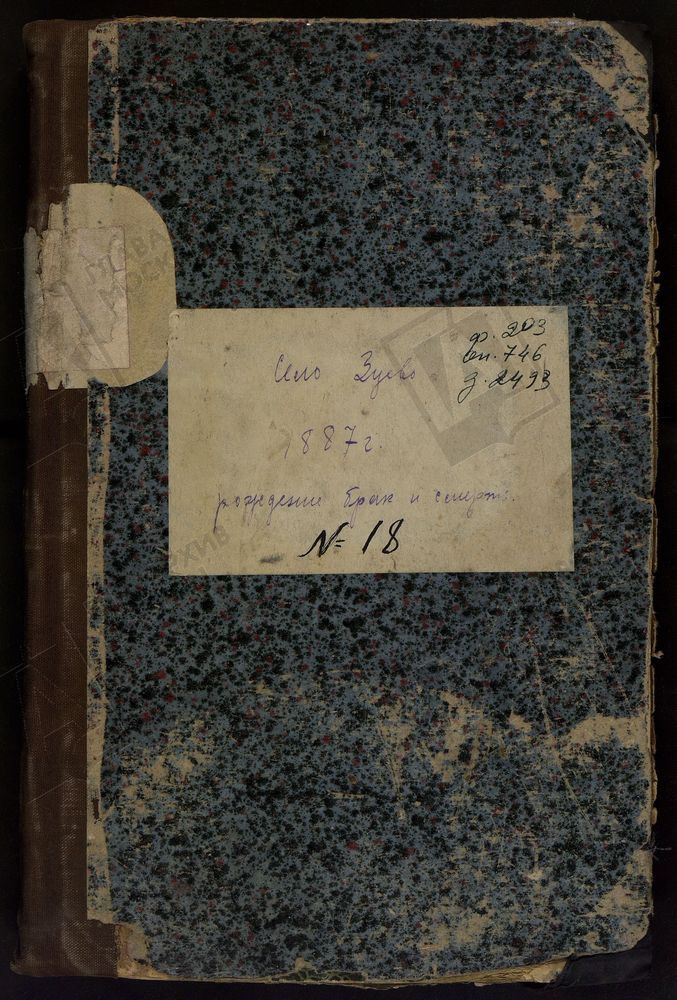 ф. 203
оп. 746
д. 2493
Село Зуево
1887 г.
рождение брак и смерть.
№ 18